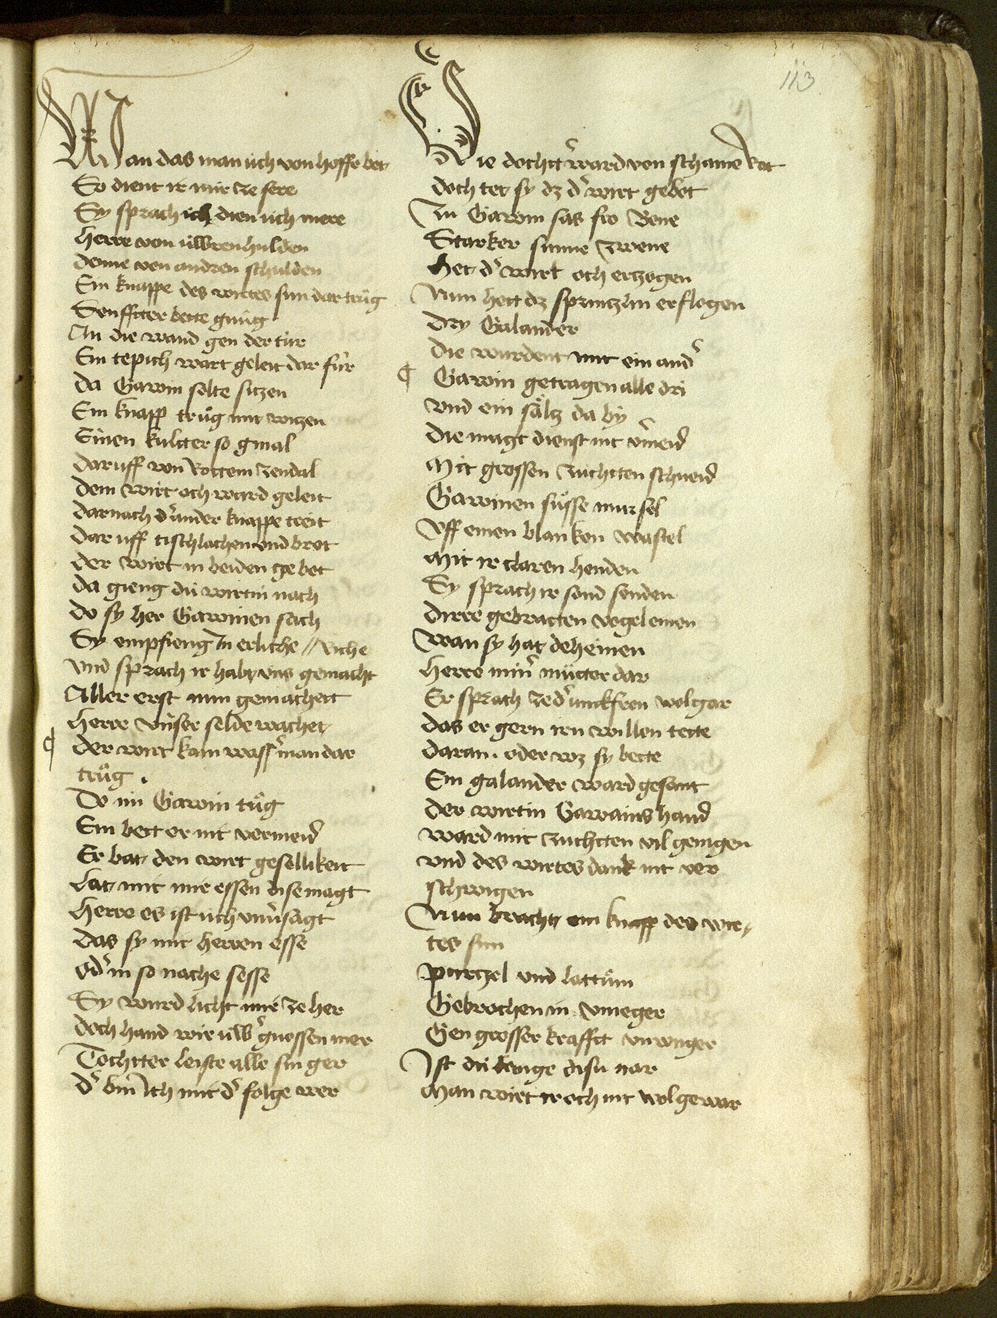 113
Wan das man úch von hoffe bet
So dient ir mir ze sere
Sy sprach ich dien úch mere
Herre von úwren hulden
Denne von andren schulden
Ein knappe des wirtes sun dar trůg
Senffter bette gnůg
An die wand gen der túr
Ein tepich wart geleit dar fúr
Da Gawin solte sitzen
Ein knapp trůg mit witzen
Einen kulter so gmal
Dar uff von rottem zendal
Dem wirt och ward geleit
Darnach dˀ ander knappe treit
Dar uff tischlachen vnd brot
Der wirt in beiden ge bot
Da gieng dú wirtin nach
Do sy her Gawinen sach
Sy empfieng In erliche // liche
Vnd sprach ir habt vns gemacht
Aller erst nun gemachett
Herre vnser selde wachet
Der wirt kam wassˀ man dar
trůg .
Do im Gawin tůg
Ein bett er nit vermeidˀ
Er bat den wirt gesellikeit
Lat mit mir essen dise magt
Herre es ist úch vnuˀsagt
Das sy mit herren esse
Odˀ in so nache sesse
Sy wurd licht mir ze her
Doch hand wir úwˀ gnossen mer
Tochtter leiste alle sin ger
Dˀ bin ich mit dˀ folge wer
Die dochttˀ ward von schame rot
Doch tet sy dz dˀ wirt gebot
Zu Gawin sas fro Bene
Starker sunne zwene
Het dˀ wirt och erzogen
Nun hett dz sprintzlin erflogen
Dry Galander
Die wurdent mit ein andˀ
Gawin getragen alle dri
Vnd ein saltz da by
Die magt dienst nit vˀmeidˀ
Mit grossen zuchtten schneidˀ
Gawinen sůsse mursel
Vff einen blanken wastel
Mit ir claren henden
Sy sprach ir sond senden
Dirre gebratten vogel einen
Wan sy hat deheinen
Herre minˀ můtter dar
Er sprach ze dˀ iunkfron wolgar
Das er gern irn willen tette
Daran . oder wz sy bette
Ein galander ward gesant
Der wirtin Gawains handˀ
Ward mit zuchtten vil genigen
Vnd des wirtes dank nit ver
schwigen
Nun bracht ein knapp des wir,
tes sun
Purtzel vnd lattůn
Gebrochen in vineger
Gen grosser krafft vnwiger
Ist dú lenge disú nar
Man wirt ir och nit wol gewar